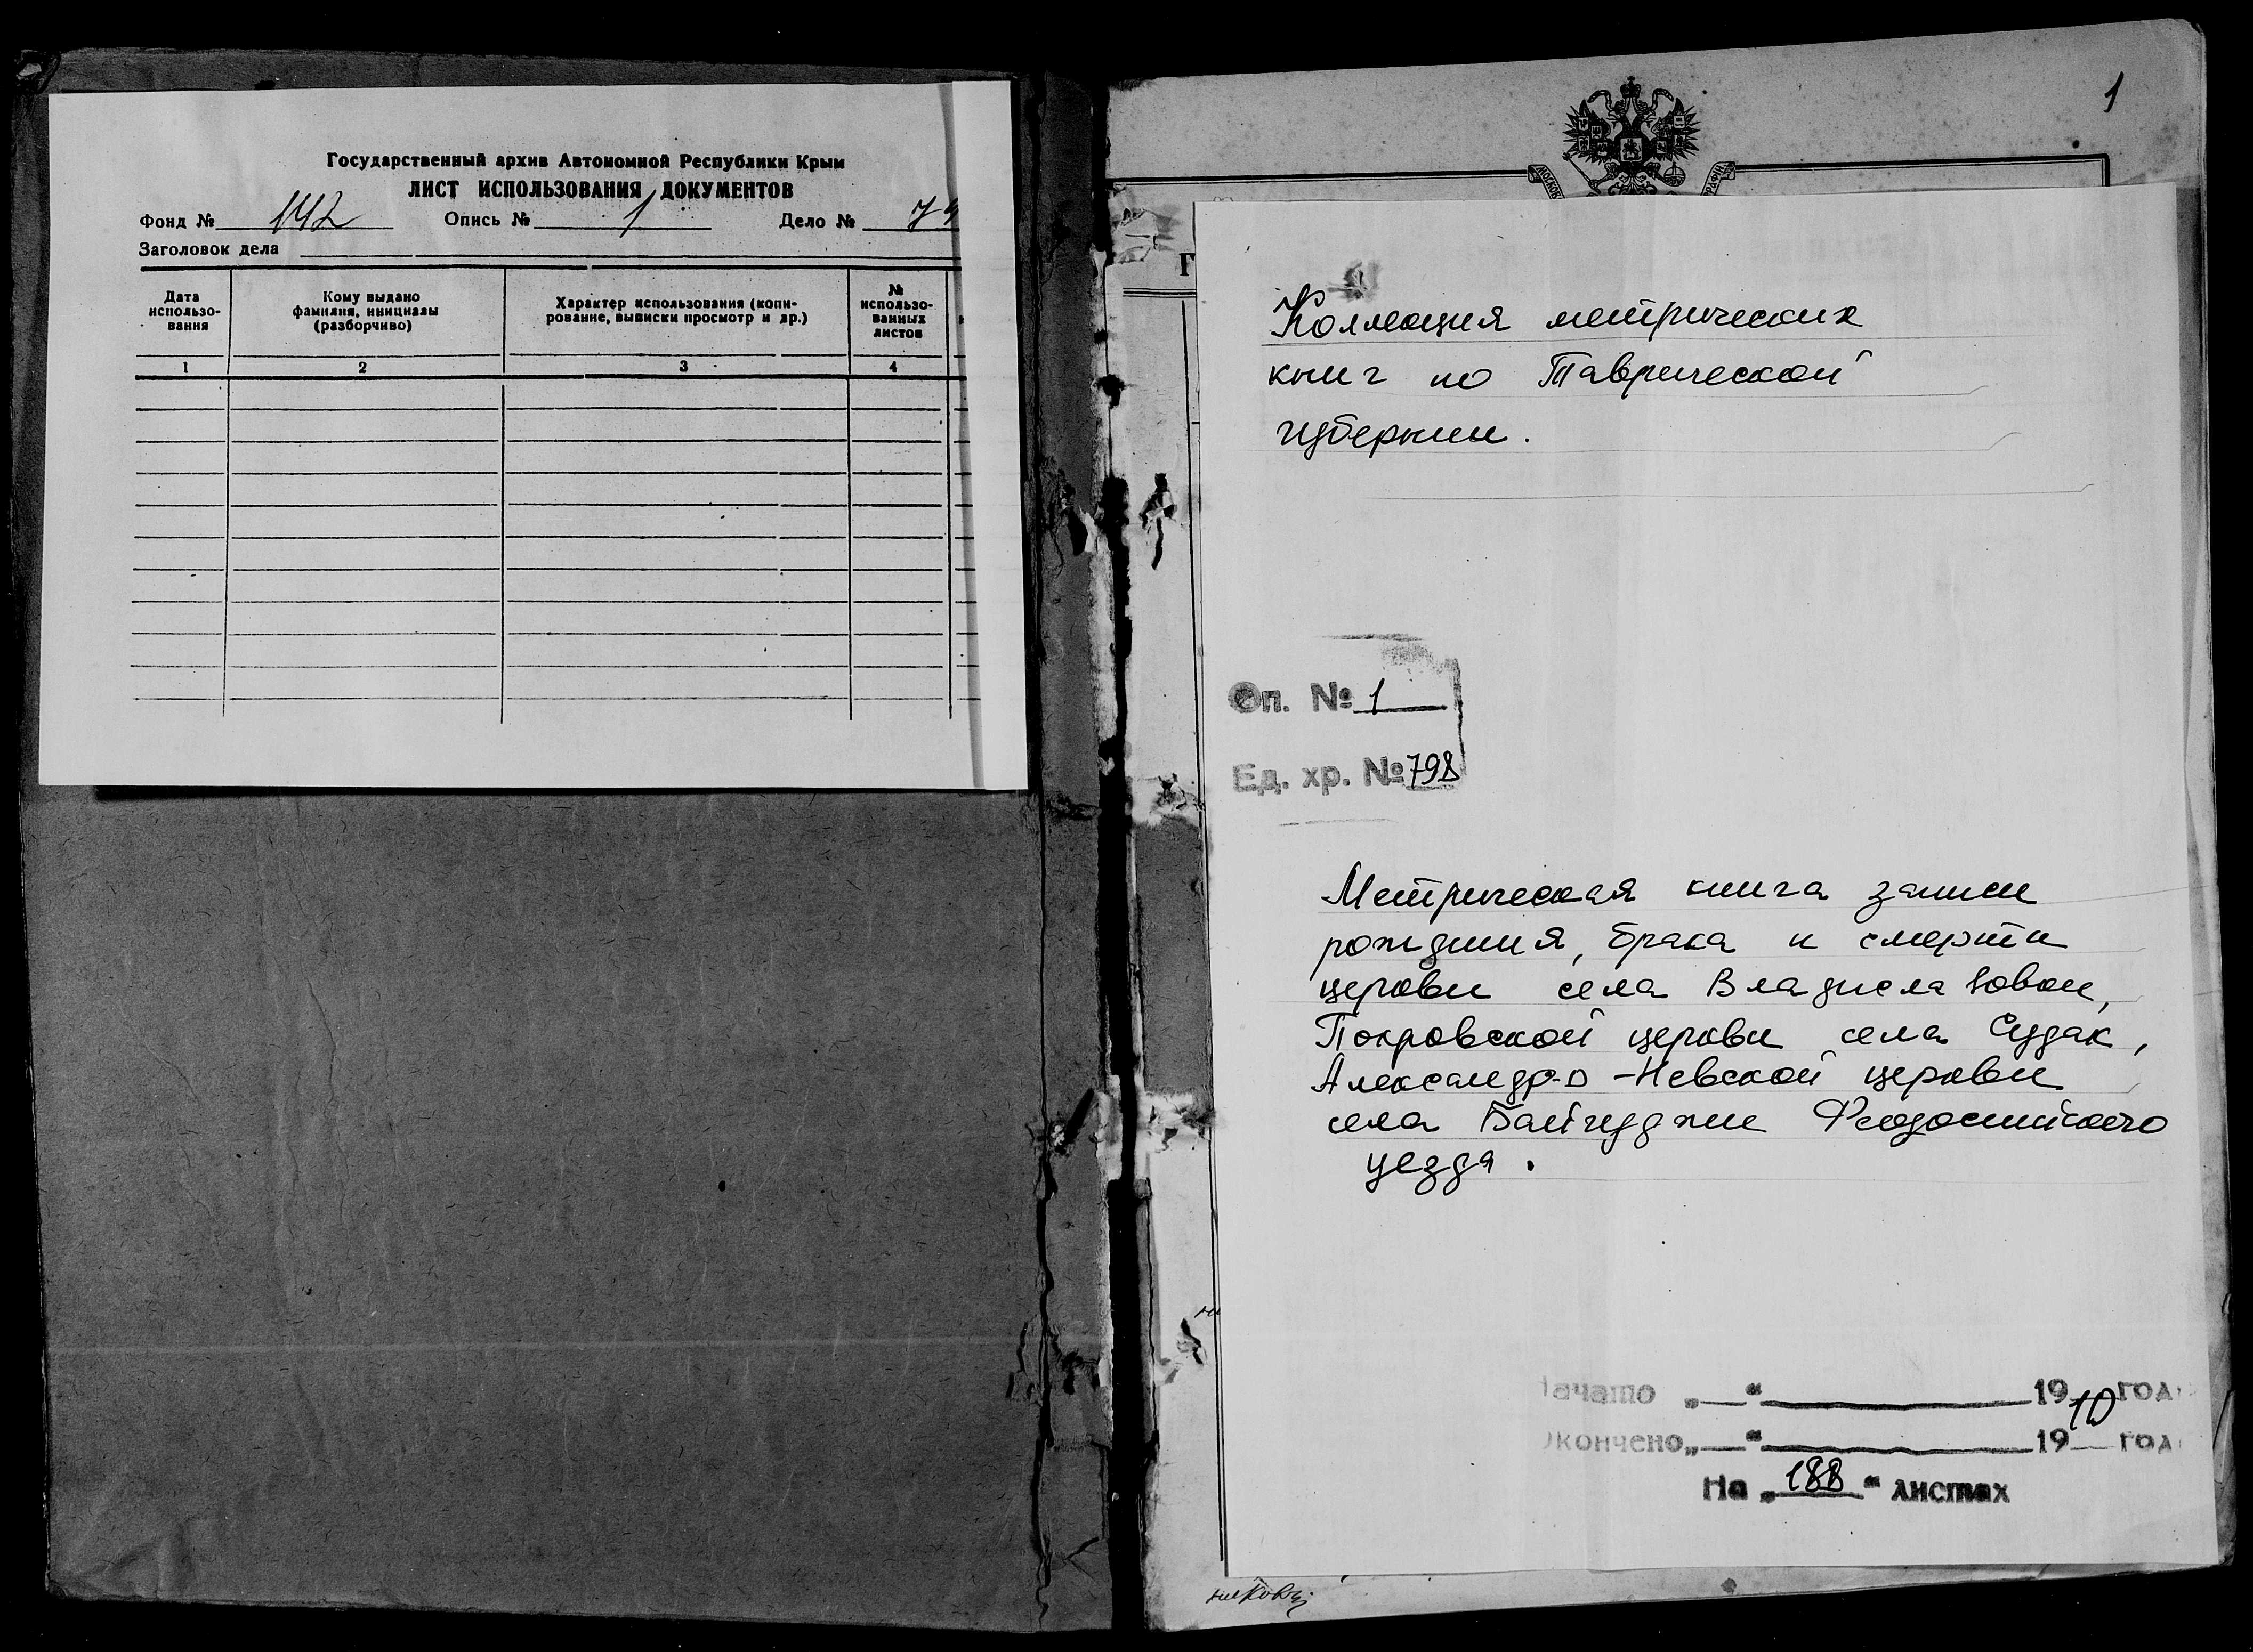 Государственный архив Автономной Республики Крым
ЛИСТ ИСПОЛЬЗОВАНИЯ ДОКУМЕНТОВ
Фонд № 142 Опись № 1 Дело № 79
Заголовок дела
Дата использо-вания
Кому выдано фамилия, инициалы (разборчиво)
Характер использования (копи-рование, выписки просмотр и др.)
№ использо-ванных листов
1 2 3 4
1
Коллекция метрических
книг по Таврической
губернии.
Оп. № 1
Ед. хр. № 798
Метрическая книга записи
рождения, брака и смерти
церкви села Владиславовки,
Покровской церкви села Судак,
Александро-Невской церкви
села Байгуджи Феодосийского
уезда.
Начато „ “ 1910 год
Окончено „ “ 19 год
На „188“ листах